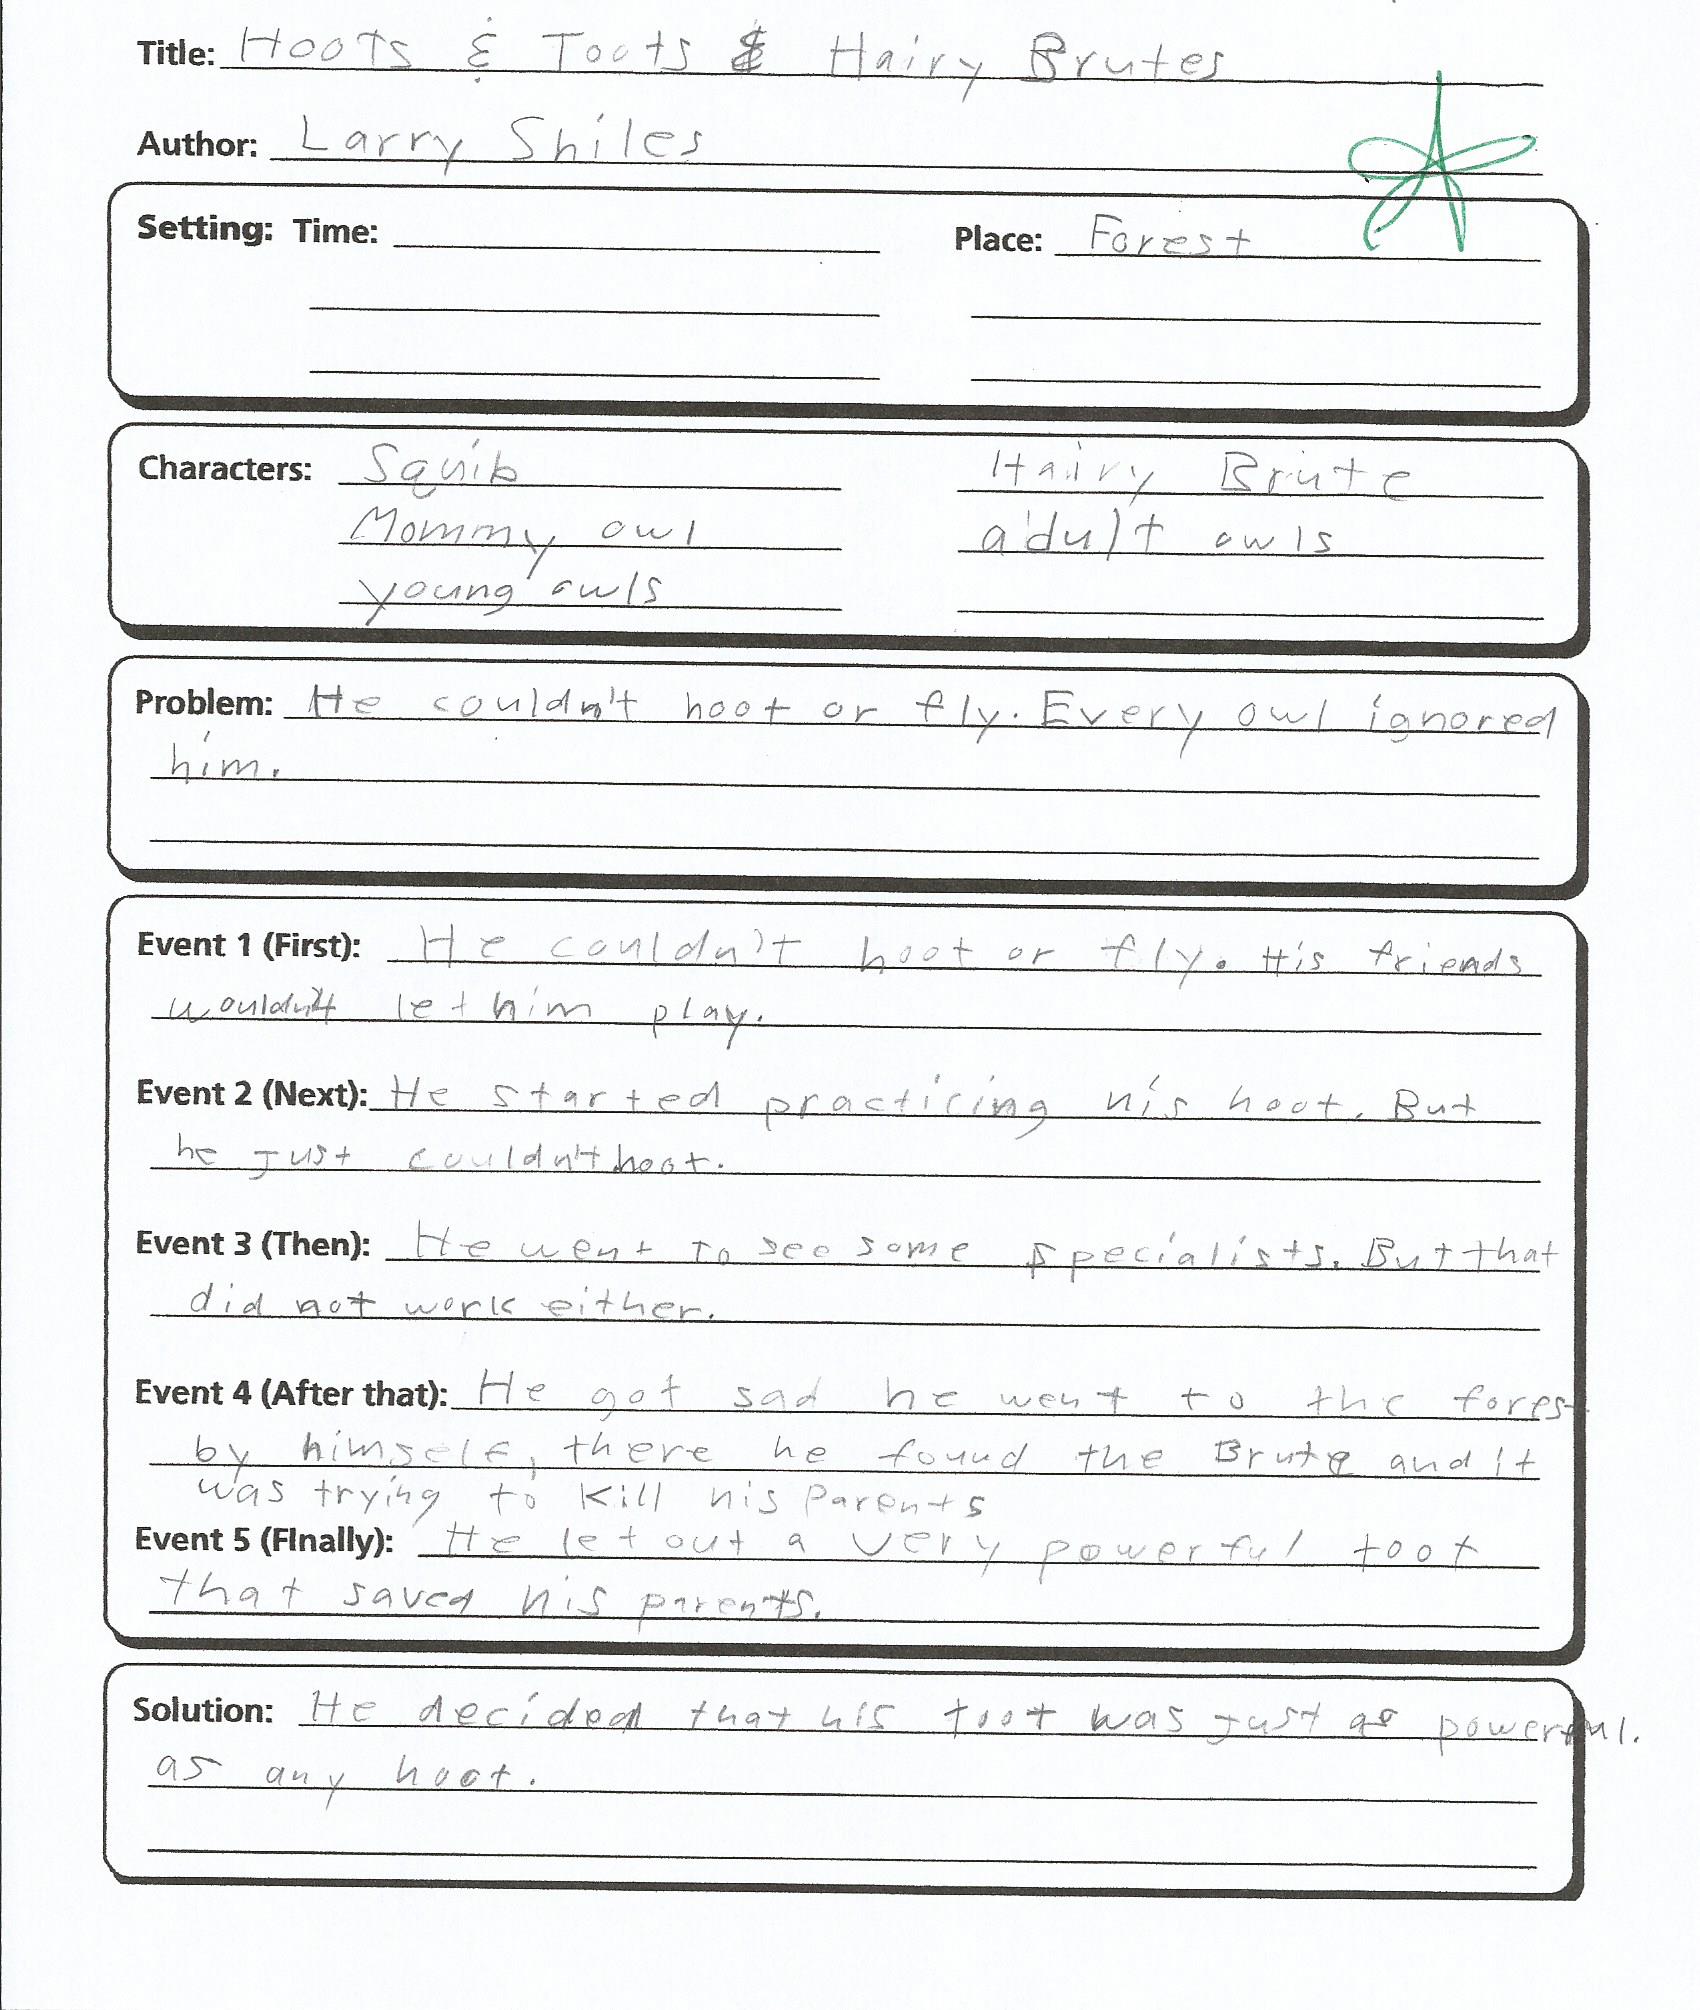 Title: Hoots & Toots & Hairy Brutes
Author: Larry Shiles
Setting: Time: Place: Forest
Characters: Squib Hairy Brute
Mommy owl adult owls
young owls
Problem: He couldn't hoot or fly. Every owl ignored
him.
Event 1 (First): He couldn't hoot or fly. His friends
wouldn't let him play.
Event 2 (Next): He started practicing his hoot. But
he just couldn't hoot.
Event 3 (Then): He went to see some specialists. But that
did not work either.
Event 4 (After that): He got sad he went to the forest
by himself, there he found the Brute and it
was trying to kill his parents
Event 5 (FInally): He let out a very powerful toot
that saved his parents.
Solution: He decided that his toot was just as powerful.
as any hoot.